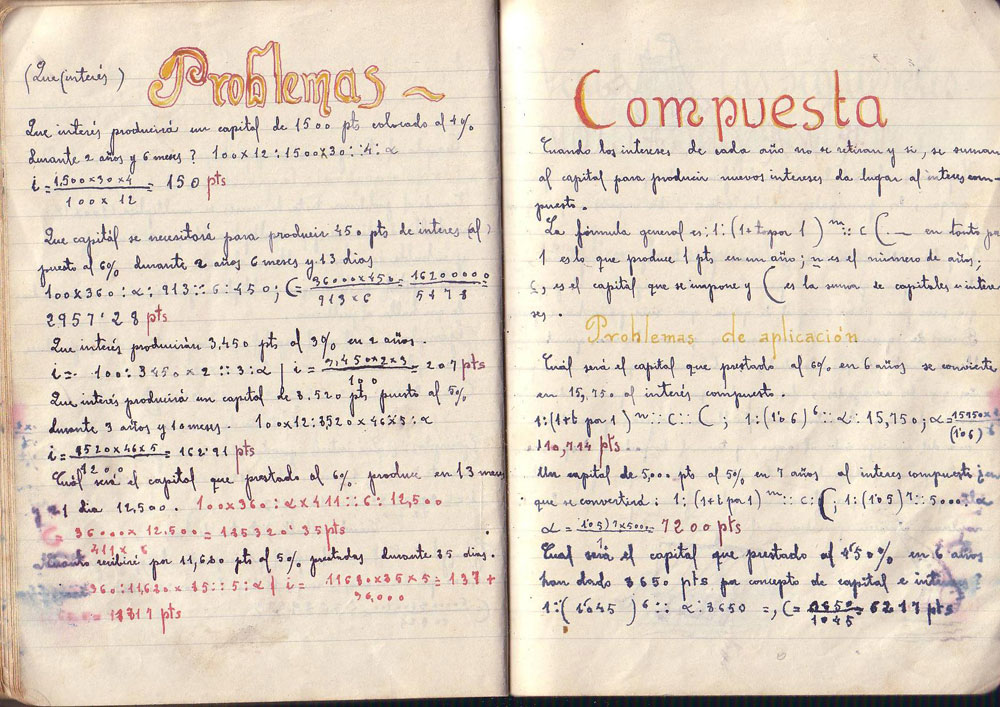 (Que interés)
Problemas
Que interés producirá un capital de 1500 pts colocado al 4%
durante 2 años y 6 meses? 100x12:1500x30::4:α
i = 1,500x30x4 / 100x12 = 150 pts
Que capitál se necesitará para producir 450 pts de interes (al)
puesto al 6% durante 2 años 6 meses y 13 dias
100x360:α:913::6:450; C= 36000x450 / 913x6 = 16200000 / 5478 =
2957'28 pts
Que interés producirán 3,450 pts al 3% en 2 años.
i=· 100:3450x2::3:α | i = 3,450x2x3 / 100 = 207 pts
Que interés producirá un capital de 3.520 pts puesto al 5%
durante 3 años y 10 meses. 100x12:3520x46x5:α
i = 3520x46x5 / 1200 = 162'91 pts
Cuál será el capital que prestado al 6% produce en 13 meses
y 1 dia 12,500. 100x360:αx411::6:12,500
36000x12,500 / 411x6 = 185320'35 pts
Cuanto recibiré por 11,680 pts al 5% prestadas durante 35 dias.
360:11,620x35::5:α | i = 11680x35x5 / 36,000 = 137 +
= 11817 pts
Compuesta
Cuando los intereses de cada año no se retiran y si, se suman
al capital para producir nuevos intereses da lugar al interes com-
puesto.
La fórmula general es: 1:(1+t por 1)ᵐ::c C.— en tanto por
1 es lo que produce 1 pts en un año; n es el número de años;
c, es el capital que se impone y C es la suma de capitales e intere
ses.
Problemas de aplicación
Cuál será el capital que prestado al 6% en 6 años se convierte
en 15,750 al interés compuesto.
1:(1+t por 1)ⁿ::C::C; 1:(1'06)⁶::α:15,750; α= 15750x1 / (1'06)⁶
110,714 pts.
Un capital de 5,000 pts al 5% en 7 años al interes compuesto
que se convertirá: 1:(1+t por 1)ᵐ::c:C; 1:(1'05)⁷::5000:α
α = (1'05)⁷x5000 / 1 = 7200 pts
Cual será el capital que prestado al 4'50% en 6 años
han dado 3650 pts por concepto de capital e interes?
1:(1'045)⁶::α:3650 =, C= 3650 / 1045 = 6217 pts